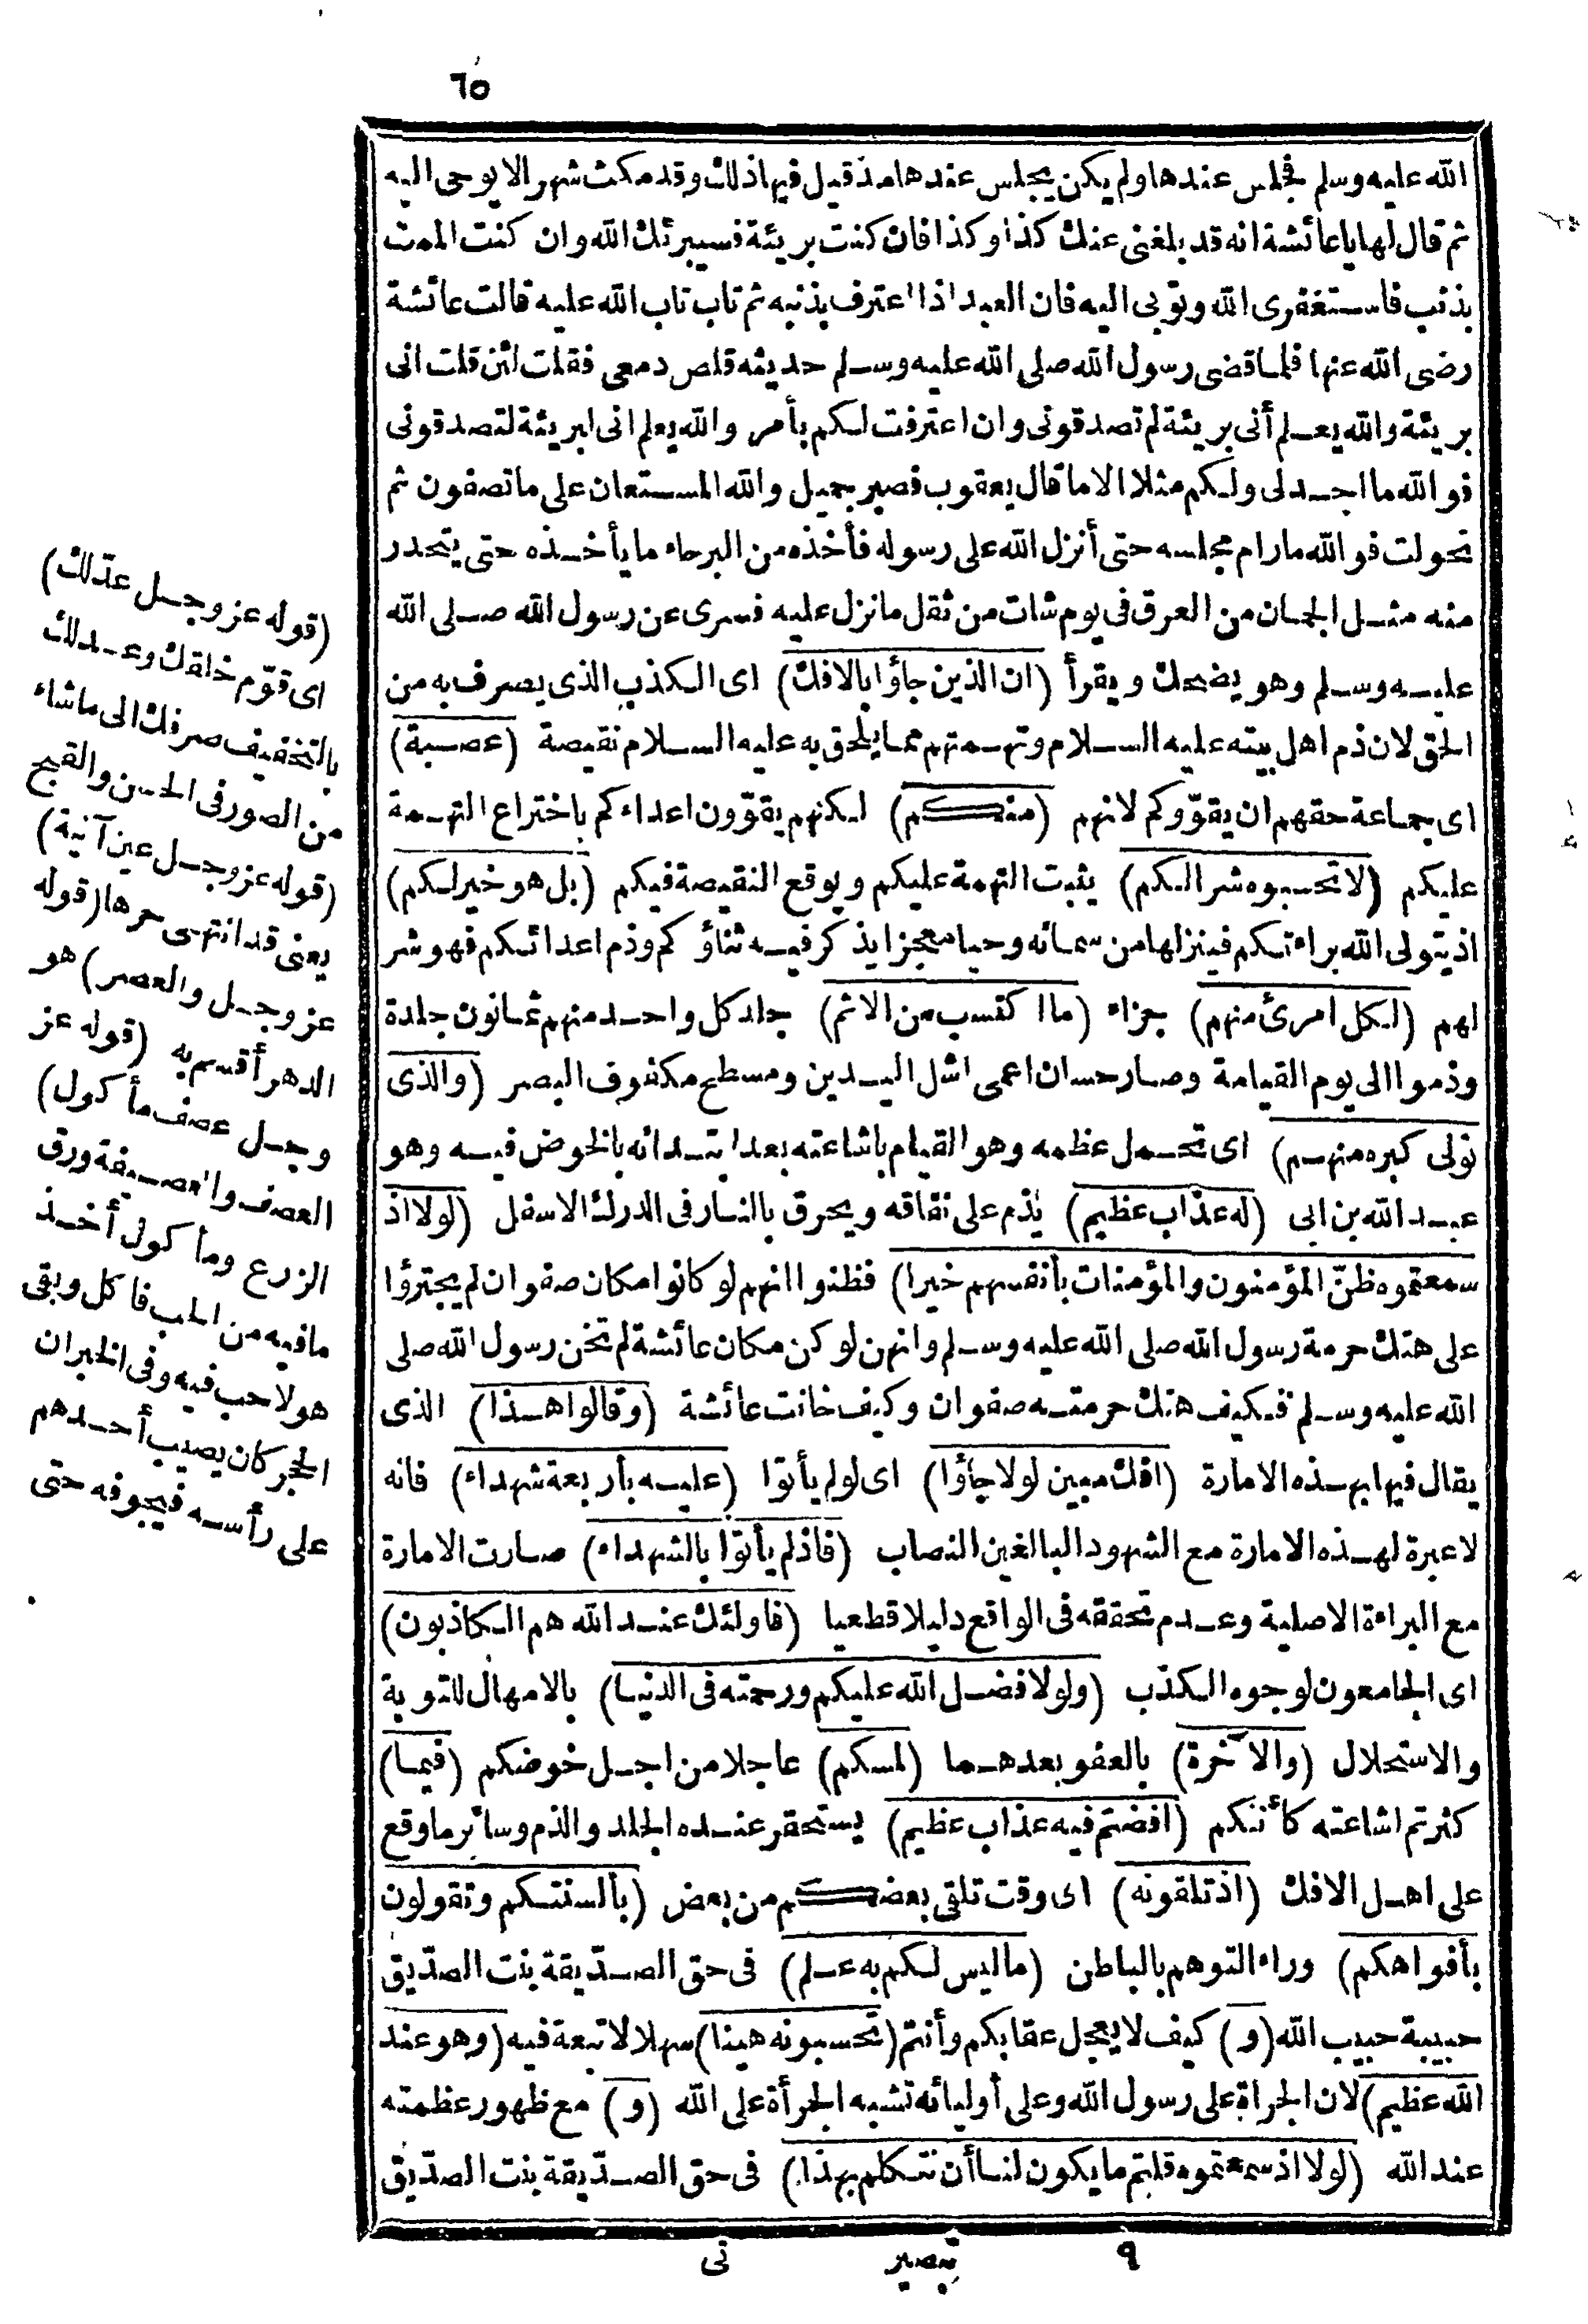 ٦٥
الله عليه وسلم فجلس عندها ولم يكن يجلس عندها مذ قيل فيها ذلك وقد مكث شهرا لا يوحى اليه
ثم قال لها يا عائشة انه قد بلغنى عنك كذا وكذا فان كنت بريئة فسيبرئك الله وان كنت الممت
بذنب فاستغفرى الله وتوبى اليه فان العبد اذا اعترف بذنبه ثم تاب تاب الله عليه قالت عائشة
رضى الله عنها فلما قضى رسول الله صلى الله عليه وسلم حديثه قلص دمعى فقلت لئن قلت انى
بريئة والله يعلم أنى بريئة لم تصدقونى وان اعترفت لكم بأمر والله يعلم انى لبريئة لتصدقونى
فو الله ما اجد لى ولكم مثلا الا ما قال يعقوب فصبر جميل والله المستعان على ما تصفون ثم
تحولت فو الله ما رام مجلسه حتى أنزل الله على رسوله فأخذه من البرحاء ما يأخذه حتى يتحدر
منه مثل الجمان من العرق فى يوم شات من ثقل ما نزل عليه فسرى عن رسول الله صلى الله
عليه وسلم وهو يضحك ويقرأ (ان الذين جاؤا بالافك) اى الكذب الذى يصرف به من
الحق لان ذم اهل بيته عليه السلام وتهمتهم مما يلحق به عليه السلام نقيصة (عصبة)
اى جماعة حقهم ان يقوّوكم لانهم (منكم) لكنهم يقوّون اعداءكم باختراع التهمة
عليكم (لا تحسبوه شرا لكم) يثبت التهمة عليكم ويوقع النقيصة فيكم (بل هو خير لكم)
اذ يتولى الله براءتكم فينزلها من سمائه وحيا معجزا يذكر فيه ثناؤكم وذم اعدائكم فهو شر
لهم (لكل امرئ منهم) جزاء (ما اكتسب من الاثم) جلد كل واحد منهم ثمانون جلدة
وذموا الى يوم القيامة وصار حسان اعمى اشل اليدين ومسطح مكفوف البصر (والذى
تولى كبره منهم) اى تحمل عظمه وهو القيام باشاعته بعد ابتدائه بالخوض فيه وهو
عبد الله بن ابى (له عذاب عظيم) يذم على نفاقه ويحرق بالنار فى الدرك الاسفل (لولا اذ
سمعتموه ظنّ المؤمنون والمؤمنات بأنفسهم خيرا) فظنوا انهم لو كانوا مكان صفوان لم يجترؤا
على هتك حرمة رسول الله صلى الله عليه وسلم وانهن لو كن مكان عائشة لم تخن رسول الله صلى
الله عليه وسلم فكيف هتك حرمته صفوان وكيف خانت عائشة (وقالوا هذا) الذى
يقال فيها بهذه الامارة (افك مبين لولا جاؤا) اى لو لم يأتوا (عليه بأربعة شهداء) فانه
لا عبرة لهذه الامارة مع الشهود البالغين النصاب (فاذ لم يأتوا بالشهداء) صارت الامارة
مع البراءة الاصلية وعدم تحققه فى الواقع دليلا قطعيا (فاولئك عند الله هم الكاذبون)
اى الجامعون لوجوه الكذب (ولولا فضل الله عليكم ورحمته فى الدنيا) بالامهال للتوبة
والاستحلال (والآخرة) بالعفو بعدهما (لمسكم) عاجلا من اجل خوضكم (فيما)
كثرتم اشاعته كأنكم (افضتم فيه عذاب عظيم) يستحقر عنده الجلد والذم وسائر ما وقع
على اهل الافك (اذ تلقونه) اى وقت تلقى بعضكم من بعض (بألسنتكم وتقولون
بأفواهكم) وراء التوهم بالباطن (ما ليس لكم به علم) فى حق الصدّيقة بنت الصدّيق
حبيبة حبيب الله (و) كيف لا يعجل عقابكم وأنتم (تحسبونه هينا) سهلا لا تبعة فيه (وهو عند
الله عظيم) لان الجراة على رسول الله وعلى أوليائه تشبه الجرأة على الله (و) مع ظهور عظمته
عند الله (لولا اذ سمعتموه قلتم ما يكون لنا أن نتكلم بهذا) فى حق الصدّيقة بنت الصدّيق
٩ تبصير نى
(قوله عز وجل عدّلك)
اى قوّم خلقك وعدلك
بالتخفيف صرفك الى ما شاء
من الصور فى الحسن والقبح
(قوله عز وجل عين آنية)
يعنى قد انتهى حرها (قوله
عز وجل والعصر) هو
الدهر أقسم به (قوله عز
وجل عصف مأكول)
العصف والعصيفة ورق
الزرع ومأكول أخذ
ما فيه من الحب فاكل وبقى
هو لا حب فيه وفى الخبر ان
الحجر كان يصيب أحدهم
على رأسه فيجوفه حتى